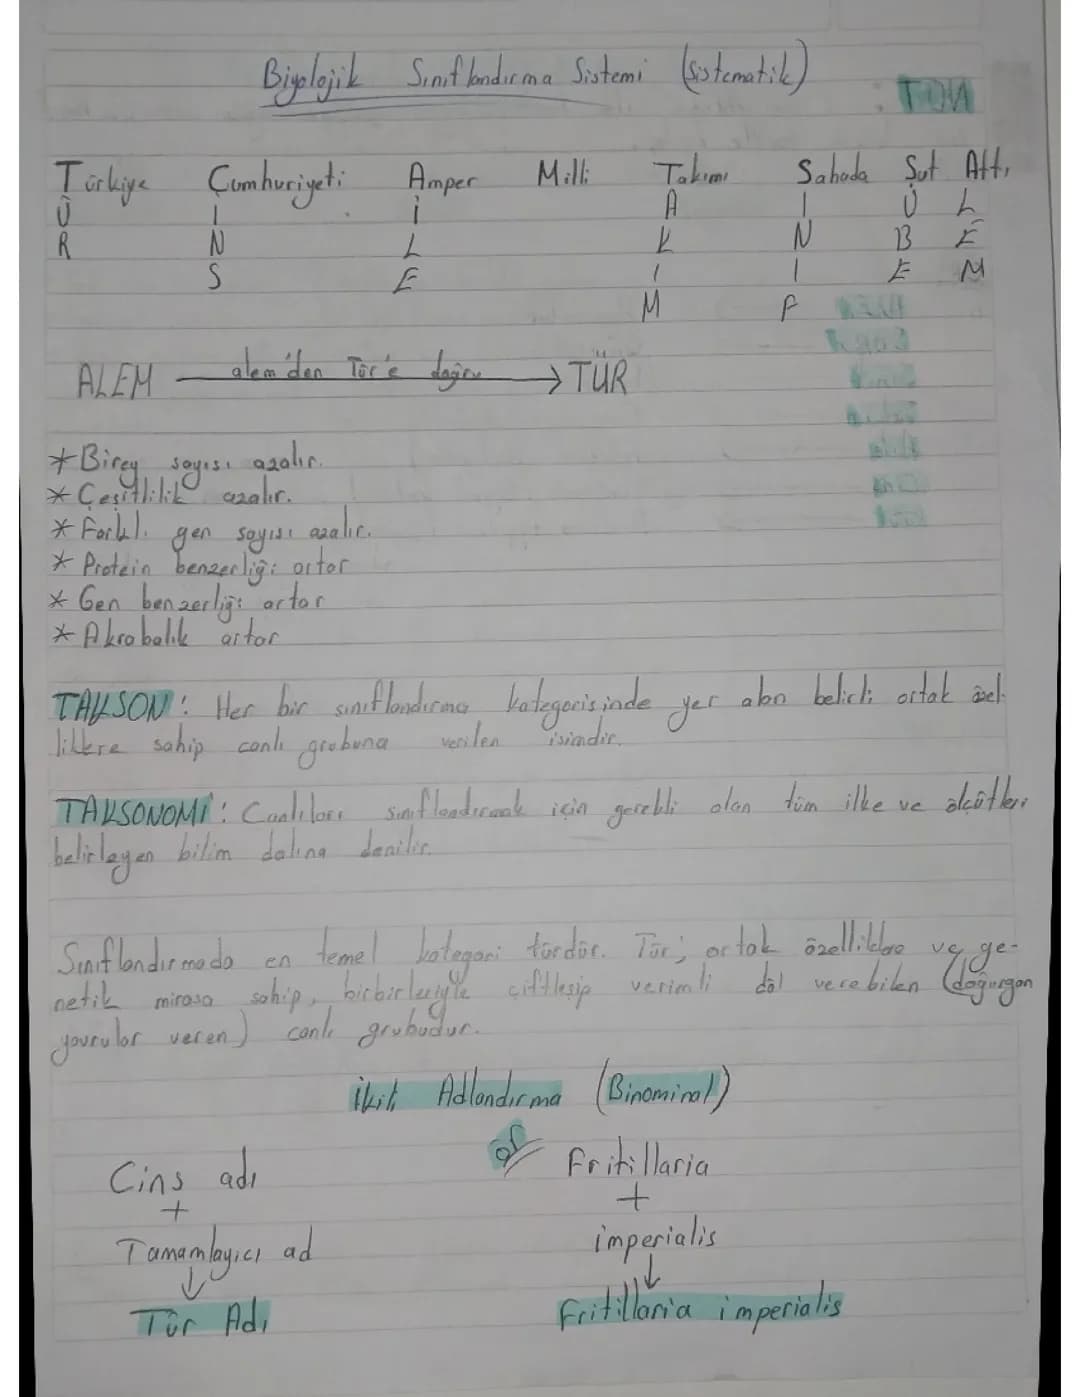 Biyolojik Sınıflandırma Sistemi (Sistematik)
Türkiye Cumhuriyeti Amper Milli Takımı Sahada Şut Attı
Ü İ İ A I U L
R N L K N B E
S E I I E M
M F
ALEM alem'den Tür'e doğru → TÜR
* Birey sayısı azalır.
* Çeşitlilik azalır.
* Farklı gen sayısı azalır.
* Protein benzerliği artar
* Gen benzerliği artar
* Akrabalık artar
TAKSON : Her bir sınıflandırma kategorisinde yer alan belirli ortak özel-
liklere sahip canlı grubuna verilen isimdir.
TAKSONOMİ : Canlıları sınıflandırmak için gerekli olan tüm ilke ve ölçütleri
belirleyen bilim dalına denilir.
Sınıflandırmada en temel kategori türdür. Tür; ortak özelliklere ve ge-
netik mirasa sahip, birbirleriyle çiftleşip verimli döl verebilen (doğurgan
yavrular veren) canlı grubudur.
İkili Adlandırma (Binominal)
Cins adı
+
Tamamlayıcı ad
↓
Tür Adı
ör Fritillaria
+
imperialis
↓
Fritillaria imperialis